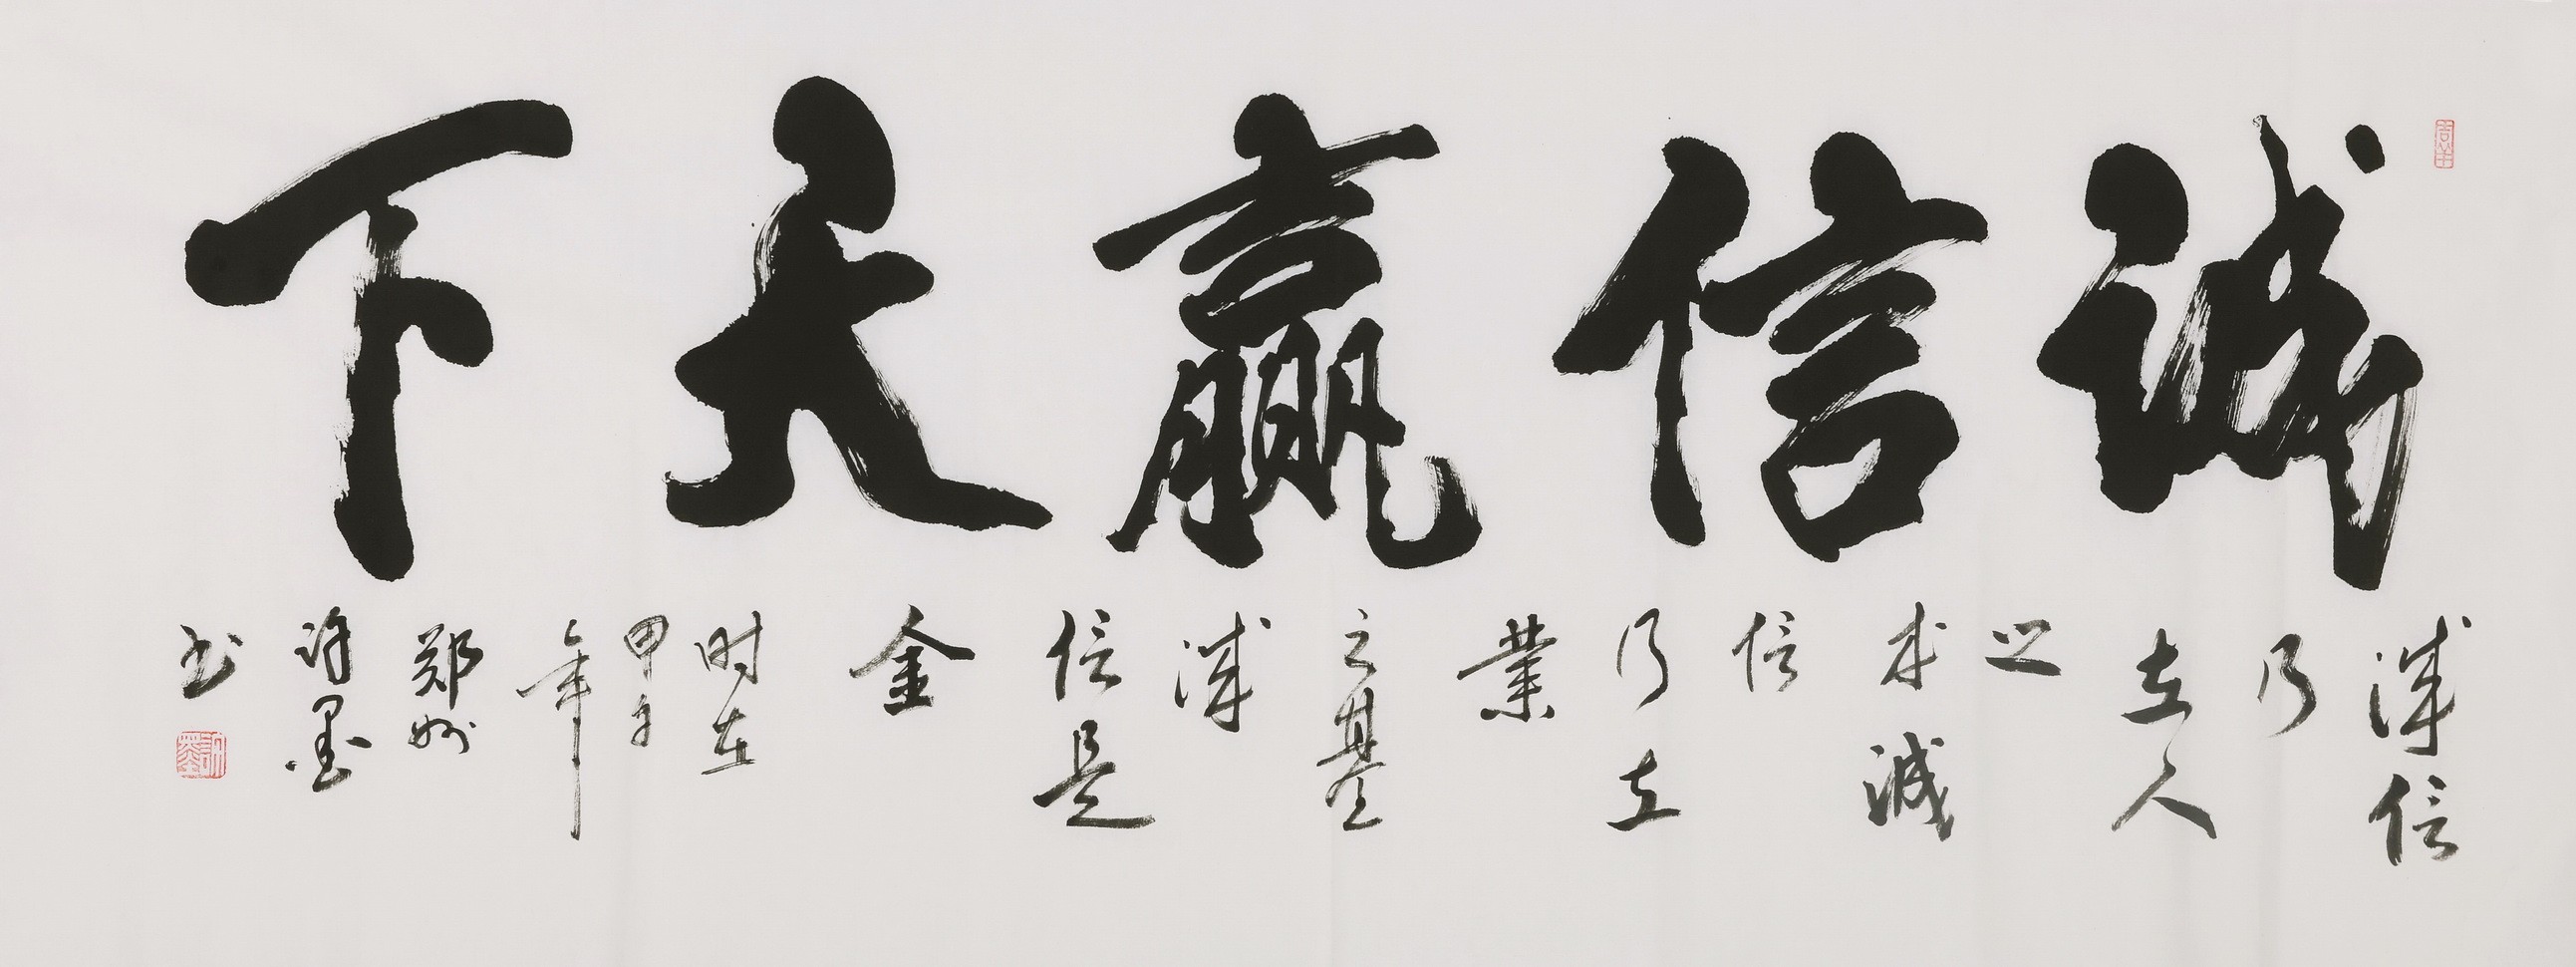 誠信贏天下
誠信
乃
立人
之
本誠
信
乃立
業
之基
誠
信是
金
时在
甲午
年
郑州
许墨
书